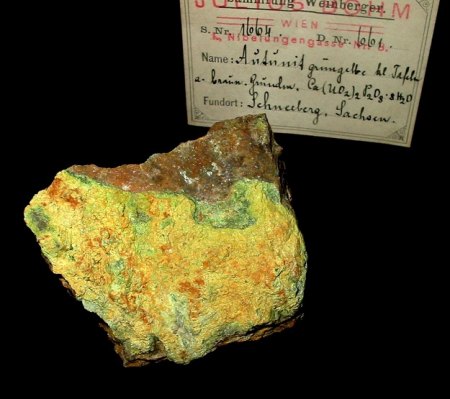 Sammlung Weinberger
WIEN
I, Nibelungengasse Nr
S. Nr. 1664. D. Nr. 661.
Name: Autunit grüngelbe kl Tafeln
a. braun. Ca(UO₂)₂P₂O₈·8H₂O
Fundort: Schneeberg, Sachsen.